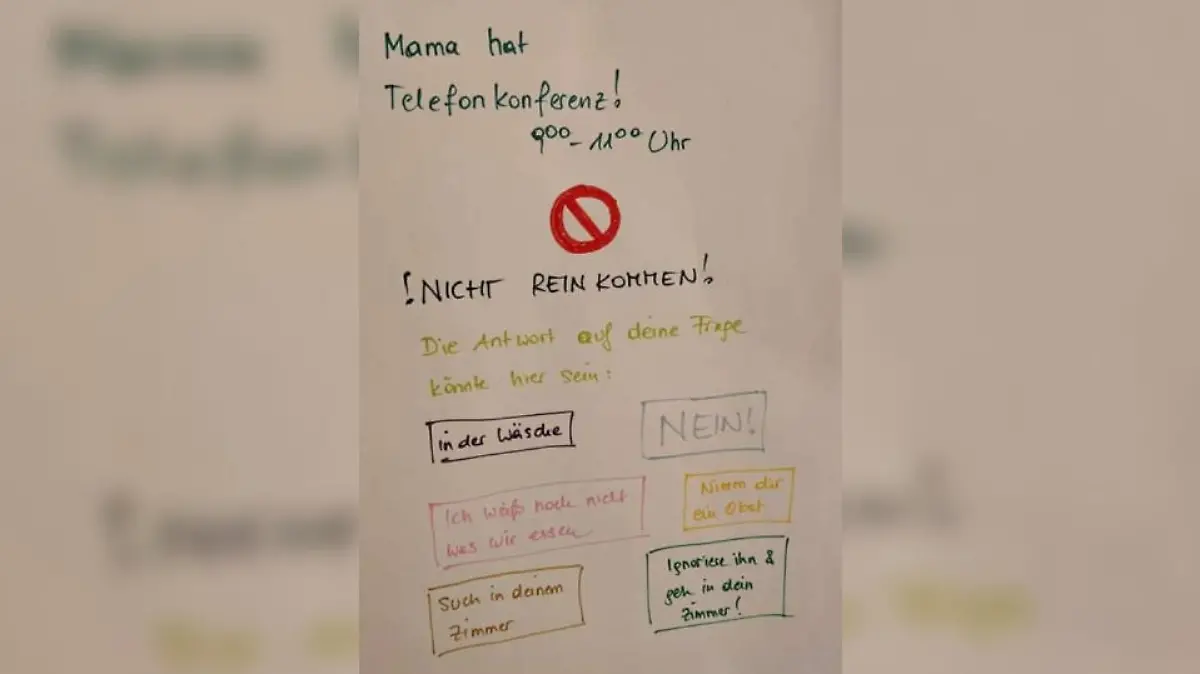 Mama hat
Telefonkonferenz!
9⁰⁰ - 11⁰⁰ Uhr
! NICHT REINKOMMEN!
Die Antwort auf deine Frage
könnte hier sein:
in der Wäsche
NEIN!
Ich wäß noch nicht
was wir essen
Nimm dir
ein Obst
Such in deinem
Zimmer
Ignoriese ihn &
geh in dein
Zimmer!